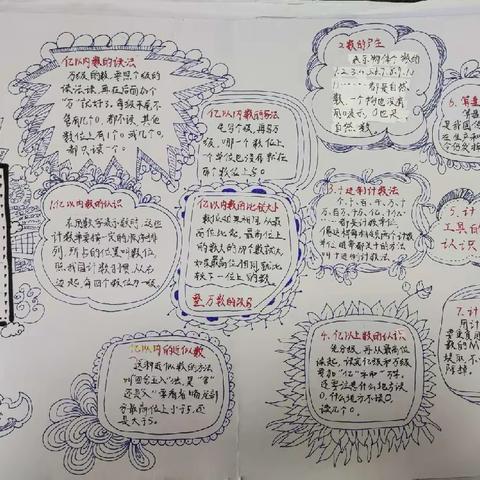 亿以内数的读法
万级的数,要照个级的
读法读,再在后面加个
"万"就好了。每级末尾不
管有几个0,都不读,其他
数位上有1个0或几个0,
都只读一个0。
1.亿以内数的认识
在用数字表示数时,这些
计数单位按一定的顺序排
列,所占的位置叫数位。
照我国计数习惯,从右
边起,每四个数位为一级
亿以内数的写法
先写个级,再写万
级,哪一个数位上
一个单位也没有就在
那个数位上写0。
亿以内数的比较大小
高位比起,最高位上
的数大的那个数就大
如果最高位相同,就比
较下一位上的数。
整万数的改写
亿以内的近似数
这种近似数的方法
叫"四舍五入"法,是"舍"
还是"入"要看省略的尾部
分最高位上小于5.还
是大于5.
2.数的产生
表示物体个数的
1.2.3.4.5.6.7.8.9.10
11……都是自然
数,一个物也没有
用0表示,0也是
自然数。
3.十进制计数法
个、十、百、千、万、十
万、百万、千万、亿、十亿…
都是计数单位
每相邻两个计数
单位进率都是十的方法
叫十进制计数法。
4.亿以上数的认识
先分级,再从最高位
读起,读完亿级和万级
要加"亿"字和"万"字。
还要注意什么地方读
0,什么地方不读0,
读几个0。
5.计
工具的
认识
6.算盘
是我国
7.计